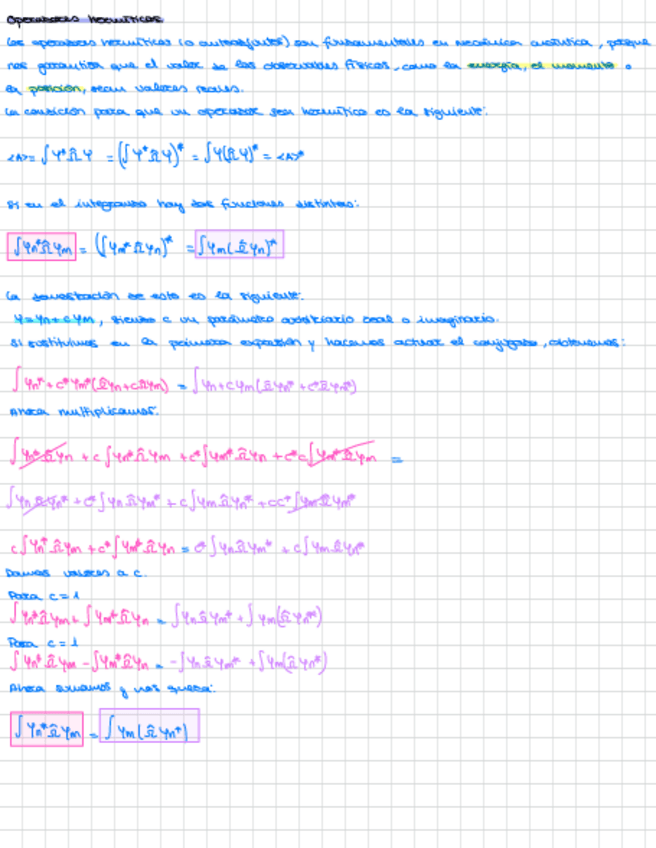 Operadores hermíticos
Los operadores hermíticos (o autoadjuntos) son fundamentales en mecánica cuántica, porque
nos garantiza que el valor de los observables físicos, como la energía, el momento o
la posición, sean valores reales.
La condición para que un operador sea hermítico es la siguiente:
<A> = ∫Ψ*Ω̂Ψ = (∫Ψ*Ω̂Ψ)* = ∫Ψ(Ω̂Ψ)* = <A>*
Si en el integrando hay dos funciones distintas:
∫Ψn*Ω̂Ψm = (∫Ψm*Ω̂Ψn)* = ∫Ψm(Ω̂Ψn)*
La demostración de esto es la siguiente:
Ψ=Ψn+cΨm, siendo c un parámetro arbitrario real o imaginario.
Si sustituimos en la primera expresión y hacemos actuar el conjugado, obtenemos:
∫Ψn*+c*Ψm*(Ω̂Ψn+cΩ̂Ψm) = ∫Ψn+cΨm(Ω̂Ψn*+c*Ω̂Ψm*)
Ahora multiplicamos:
∫Ψn*Ω̂Ψn + c∫Ψn*Ω̂Ψm + c*∫Ψm*Ω̂Ψn + c*c∫Ψm*Ω̂Ψm =
∫ΨnΩ̂Ψn* + c*∫ΨnΩ̂Ψm* + c∫ΨmΩ̂Ψn* + cc*∫ΨmΩ̂Ψm*
c∫Ψn*Ω̂Ψm + c*∫Ψm*Ω̂Ψn = c*∫ΨnΩ̂Ψm* + c∫ΨmΩ̂Ψn*
Damos valores a c.
Para c=1
∫Ψn*Ω̂Ψm + ∫Ψm*Ω̂Ψn = ∫ΨnΩ̂Ψm* + ∫Ψm(Ω̂Ψn*)
Para c=1
∫Ψn*Ω̂Ψm - ∫Ψm*Ω̂Ψn = -∫ΨnΩ̂Ψm* + ∫Ψm(Ω̂Ψn*)
Ahora sumamos y nos queda:
∫Ψn*Ω̂Ψm = ∫Ψm(Ω̂Ψn*)